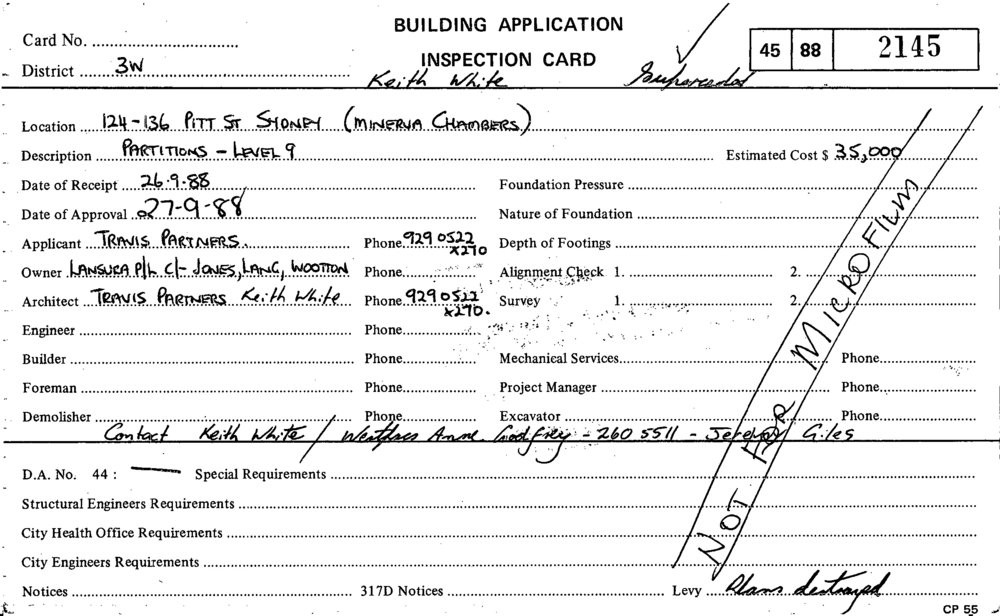 BUILDING APPLICATION
INSPECTION CARD
Card No.
District 3W
Keith White
Superseded
45 88 2145
Location 124-136 PITT ST SYDNEY (MINERVA CHAMBERS)
Description PARTITIONS - LEVEL 9 Estimated Cost $ 35,000
Date of Receipt 26.9.88 Foundation Pressure
Date of Approval 27-9-88 Nature of Foundation
Applicant TRAVIS PARTNERS. Phone 929 0522 x270 Depth of Footings
Owner LANSURA P/L C/- JONES, LANG, WOOTTON Phone Alignment Check 1. 2.
Architect TRAVIS PARTNERS Keith White Phone 929 0522 x270. Survey 1. 2.
Engineer Phone
Builder Phone Mechanical Services Phone
Foreman Phone Project Manager Phone
Demolisher Phone Excavator Phone
Contact Keith White / Anne Godfrey - 260 5511 - Jeremy Giles
NOT FOR MICROFILM
D.A. No. 44 : — Special Requirements
Structural Engineers Requirements
City Health Office Requirements
City Engineers Requirements
Notices 317D Notices Levy Plans destroyed
CP 55